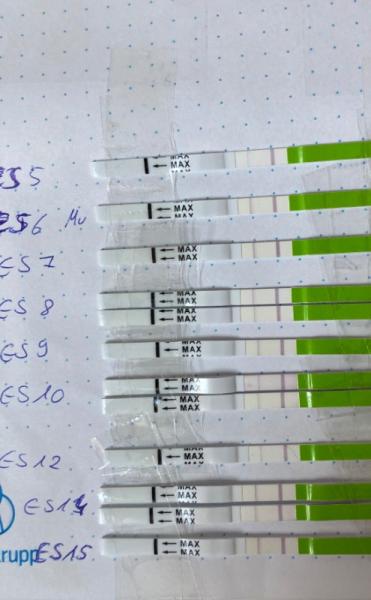 ES 5
MAX
MAX
ES6 Mu
MAX
MAX
ES 7
MAX
MAX
ES 8
MAX
MAX
MAX
MAX
ES 9
MAX
MAX
ES 10
MAX
MAX
MAX
MAX
ES12
MAX
MAX
MAX
MAX
ES14
MAX
MAX
rupp ES15
MAX
MAX